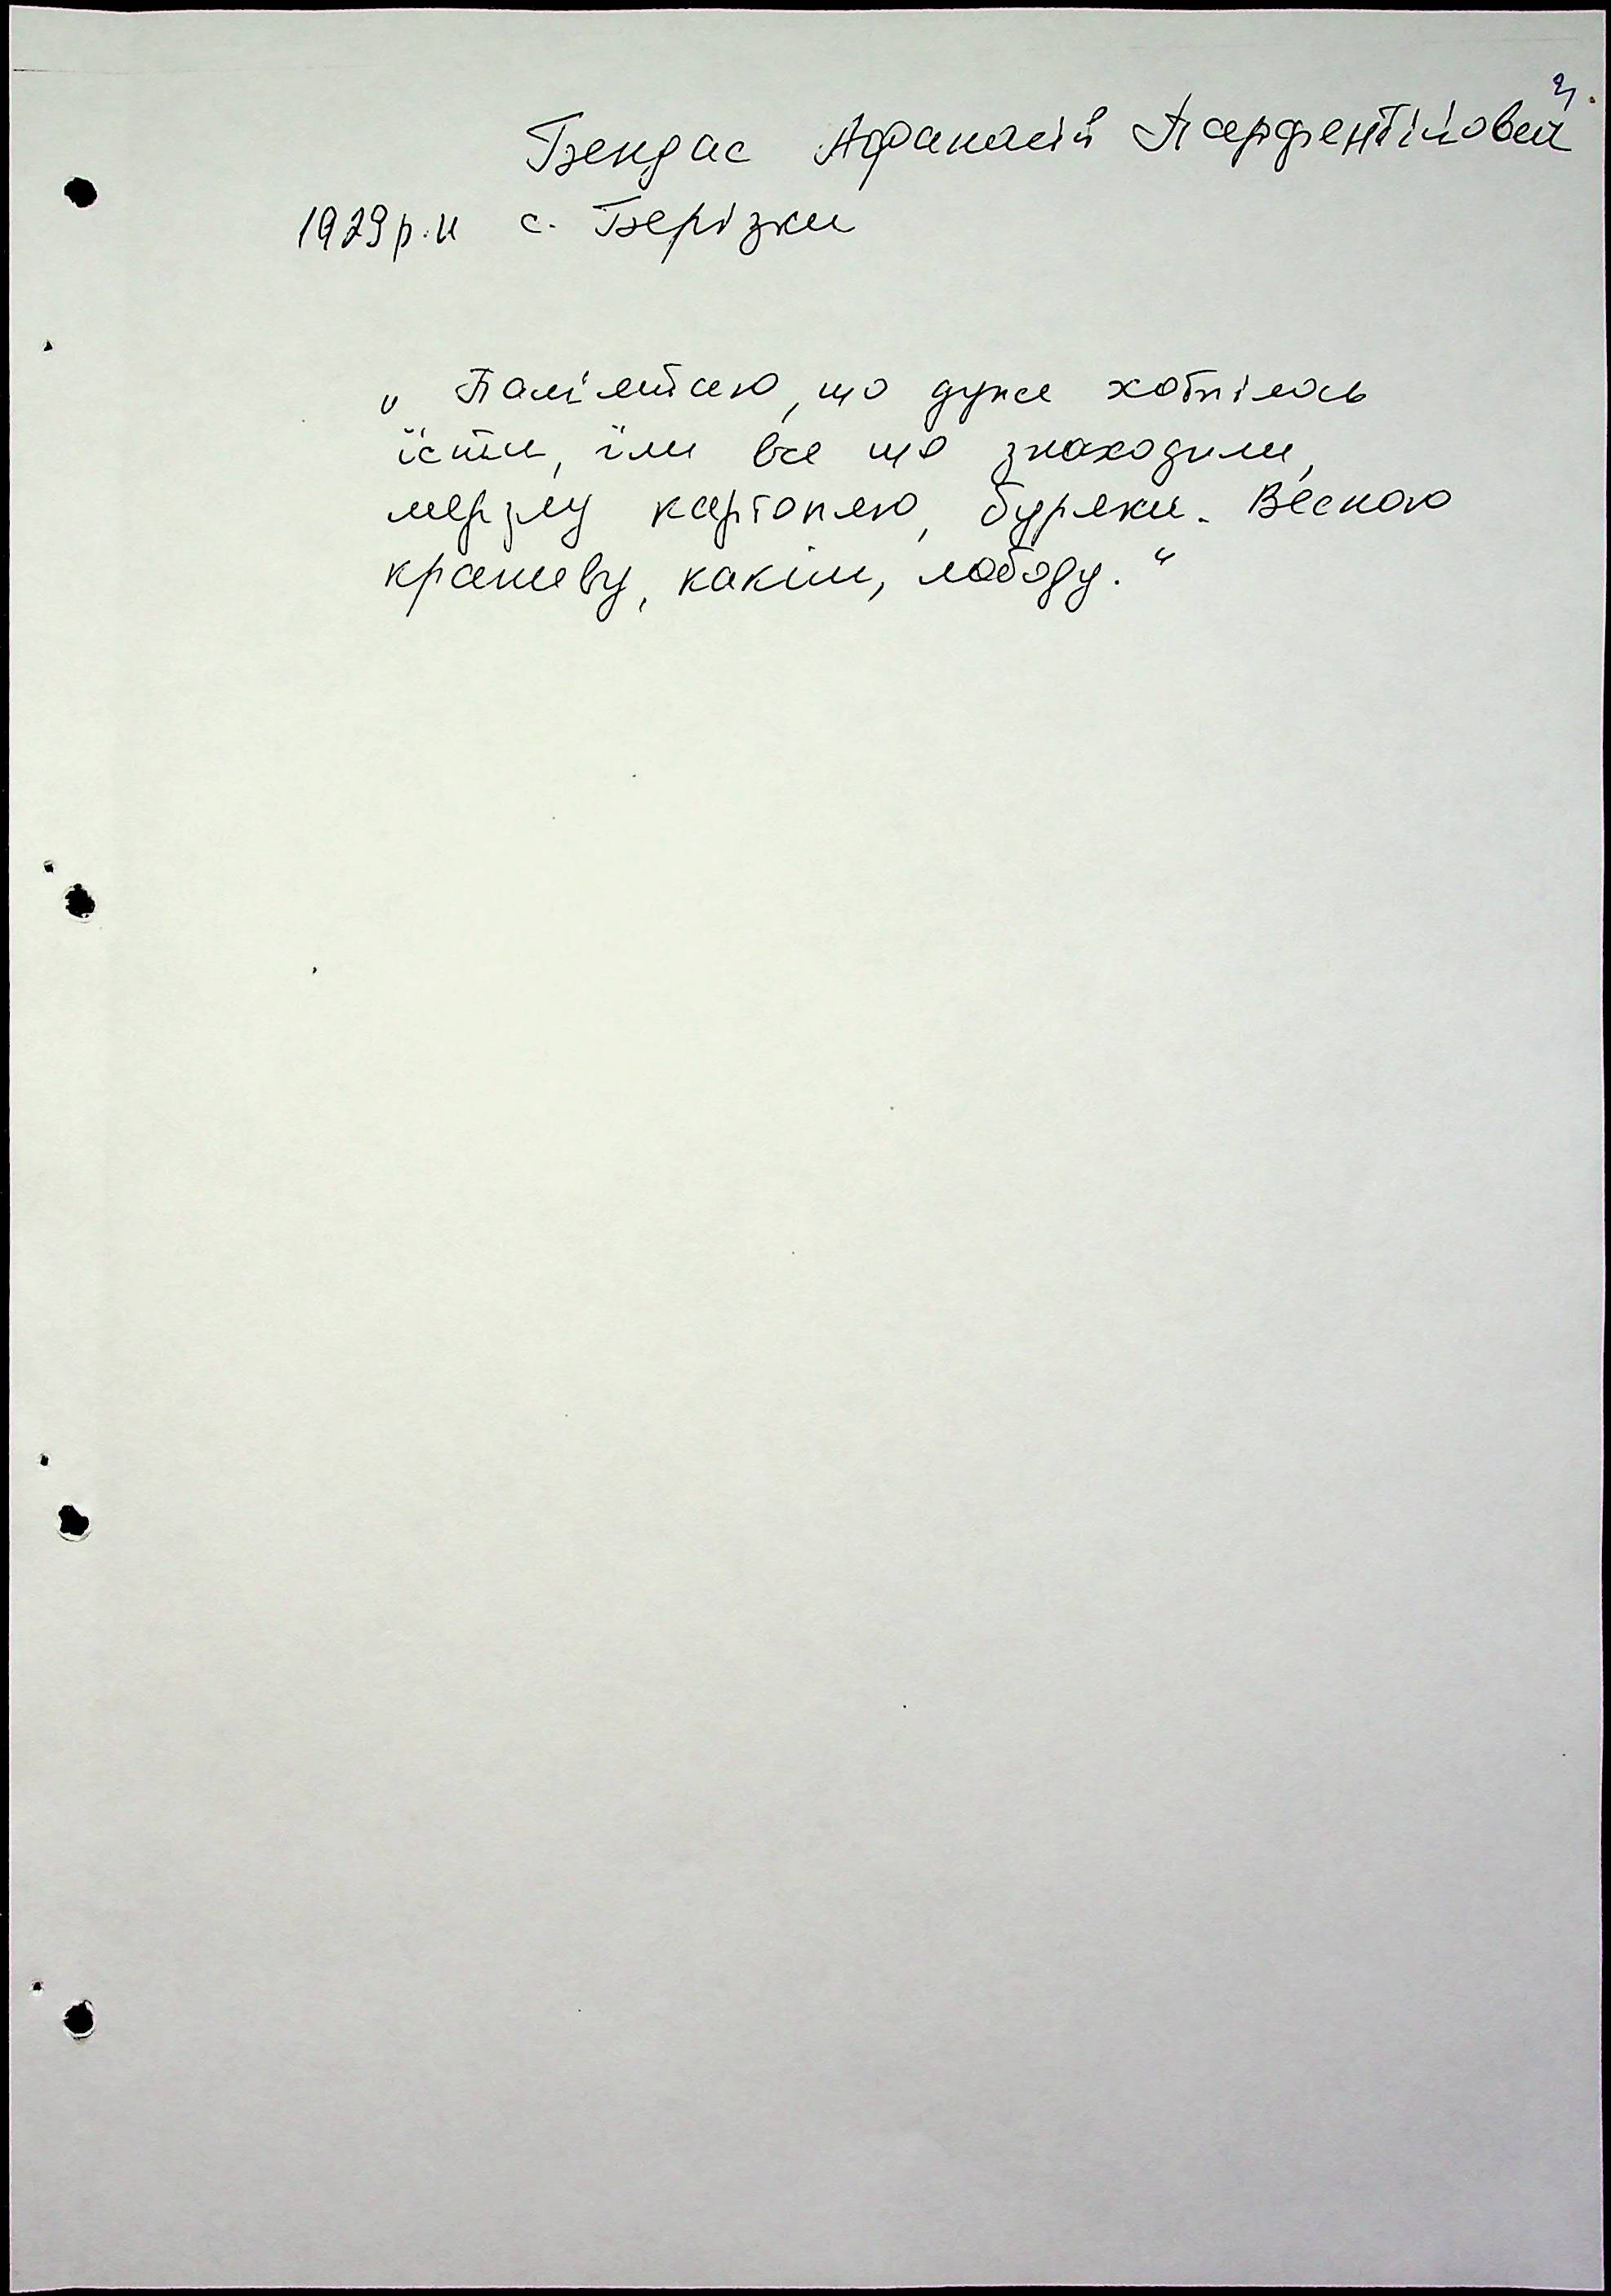 Бендас Афанасій Парфентійович
1929 р.н с. Берізки
„ Памʼятаю, що дуже хотілось
їсти, їли все що знаходили,
мерзлу картоплю, буряки. Весною
крапиву, какіш, лободу."